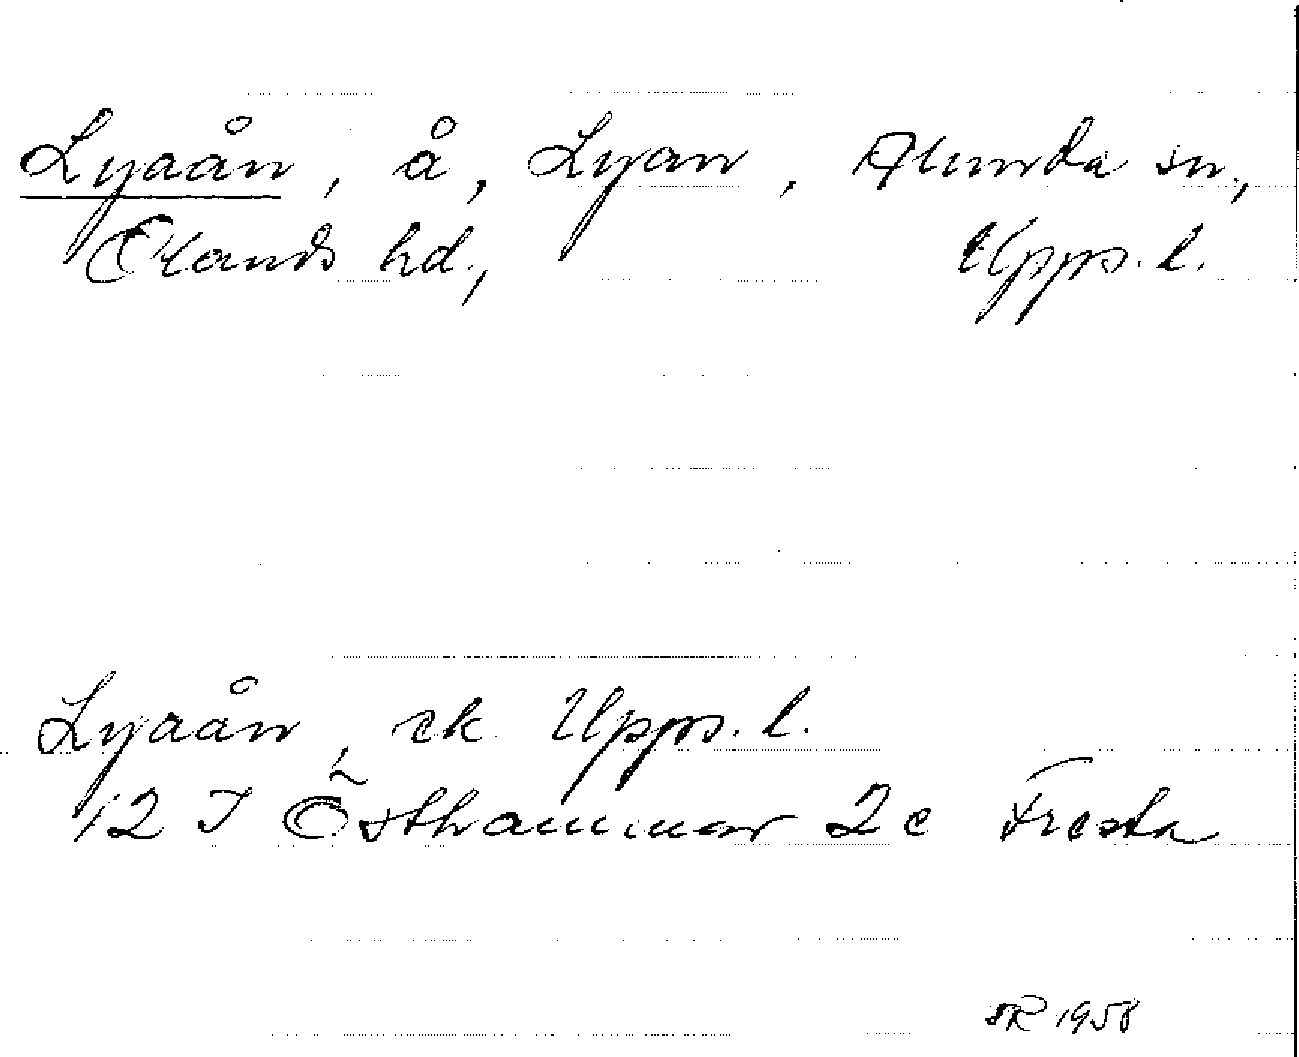 Lyaån, å, Lyan, Alunda sn.,
Olands hd., Upps. l.
Lyaån, ek. Upps. l.
12 I Östhammar 2 c Fresta
1958